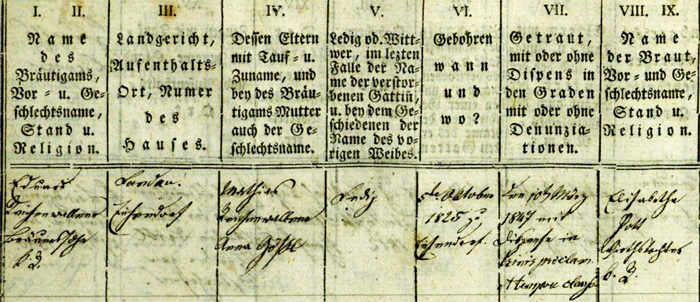 I. II.
Name
des
Bräutigams,
Vor- u. Ge-
schlechtsname,
Stand u.
Religion.
III.
Landgericht,
Aufenthalts-
Ort, Numer
des
Hauses.
IV.
Dessen Eltern
mit Tauf- u.
Zuname, und
bey des Bräu-
tigams Mutter
auch der Ge-
schlechtsname.
V.
Ledig od. Witt-
wer, im lezten
Falle der Na-
me der verstor-
benen Gattin,
u. bey dem Ge-
schiedenen der
Name des vo-
rigen Weibes.
VI.
Gebohren
wann
und
wo?
VII.
Getraut,
mit oder ohne
Dispens in
den Graden
mit oder ohne
Denunzia-
tionen.
VIII. IX.
Name
der Braut,
Vor- und Ge-
schlechtsname,
Stand u.
Religion.
Eduard
Reichenwallner
Bräuerssohn
Landau.
Eichendorf
Mathias
Reichenwallner
Anna
Ledig
5te Oktober
1825 zu
Eichendorf.
den März
1847 mit
Dispense in
Elisabetha
Pott
Wirthstochter